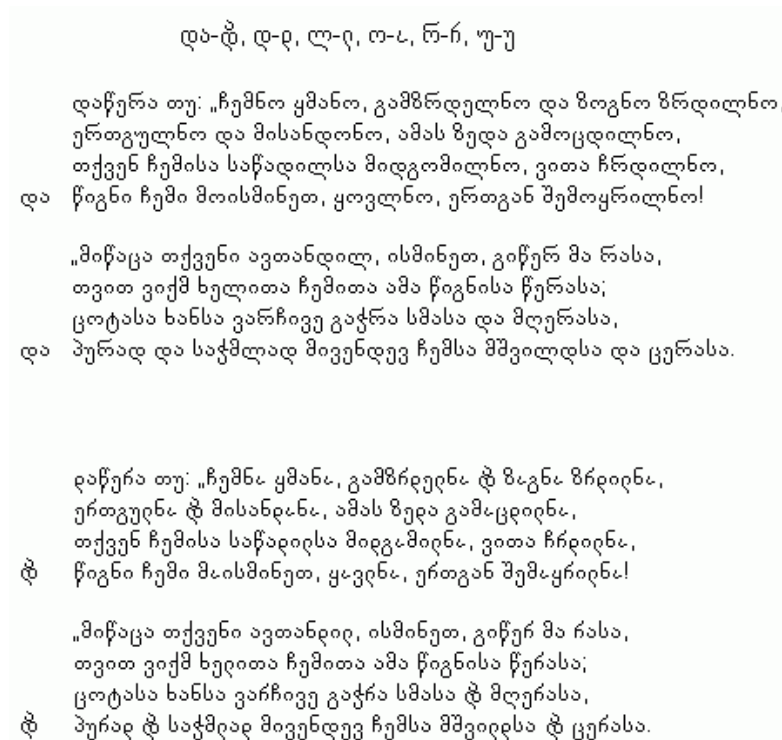 და-და, დ-დ, ლ-ლ, ო-ო, რ-რ, უ-უ
დაწერა თუ: „ჩემნო ყმანო, გამზრდელნო და ზოგნო ზრდილნო,
ერთგულნო და მისანდონო, ამას ზედა გამოცდილნო,
თქვენ ჩემისა საწადილსა მიდგომილნო, ვითა ჩრდილნო,
და წიგნი ჩემი მოისმინეთ, ყოვლნო, ერთგან შემოყრილნო!
„მიწაცა თქვენი ავთანდილ, ისმინეთ, გიწერ მა რასა,
თვით ვიქმ ხელითა ჩემითა ამა წიგნისა წერასა;
ცოტასა ხანსა ვარჩივე გაჭრა სმასა და მღერასა,
და პურად და საჭმლად მივენდევ ჩემსა მშვილდსა და ცერასა.
დაწერა თუ: „ჩემნო ყმანო, გამზრდელნო და ზოგნო ზრდილნო,
ერთგულნო და მისანდონო, ამას ზედა გამოცდილნო,
თქვენ ჩემისა საწადილსა მიდგომილნო, ვითა ჩრდილნო,
და წიგნი ჩემი მოისმინეთ, ყოვლნო, ერთგან შემოყრილნო!
„მიწაცა თქვენი ავთანდილ, ისმინეთ, გიწერ მა რასა,
თვით ვიქმ ხელითა ჩემითა ამა წიგნისა წერასა;
ცოტასა ხანსა ვარჩივე გაჭრა სმასა და მღერასა,
და პურად და საჭმლად მივენდევ ჩემსა მშვილდსა და ცერასა.